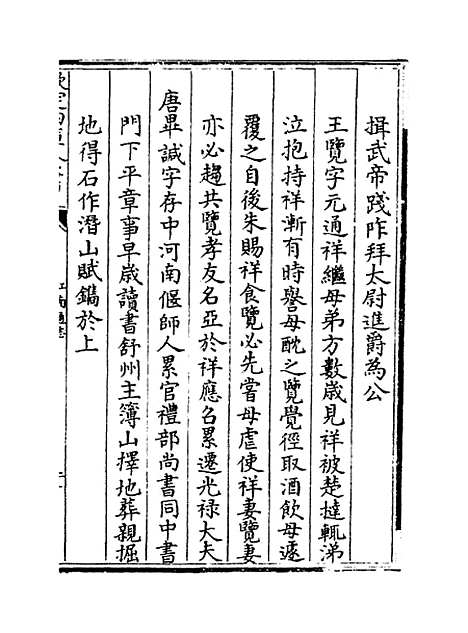 揖武帝踐阼拜太尉進爵為公
王覽字元通祥繼母弟方數歳見祥被楚撻輒涕
泣抱持祥漸有時譽母酖之覽覺徑取酒飲母遽
覆之自後朱賜祥食覽必先嘗母虐使祥妻覽妻
亦必趨共覽孝友名亞於祥應召累遷光禄大夫
唐畢諴字存中河南偃師人累官禮部尚書同中書
門下平章事早歳讀書舒州主簿山擇地葬親掘
地得石作潛山賦鐫於上